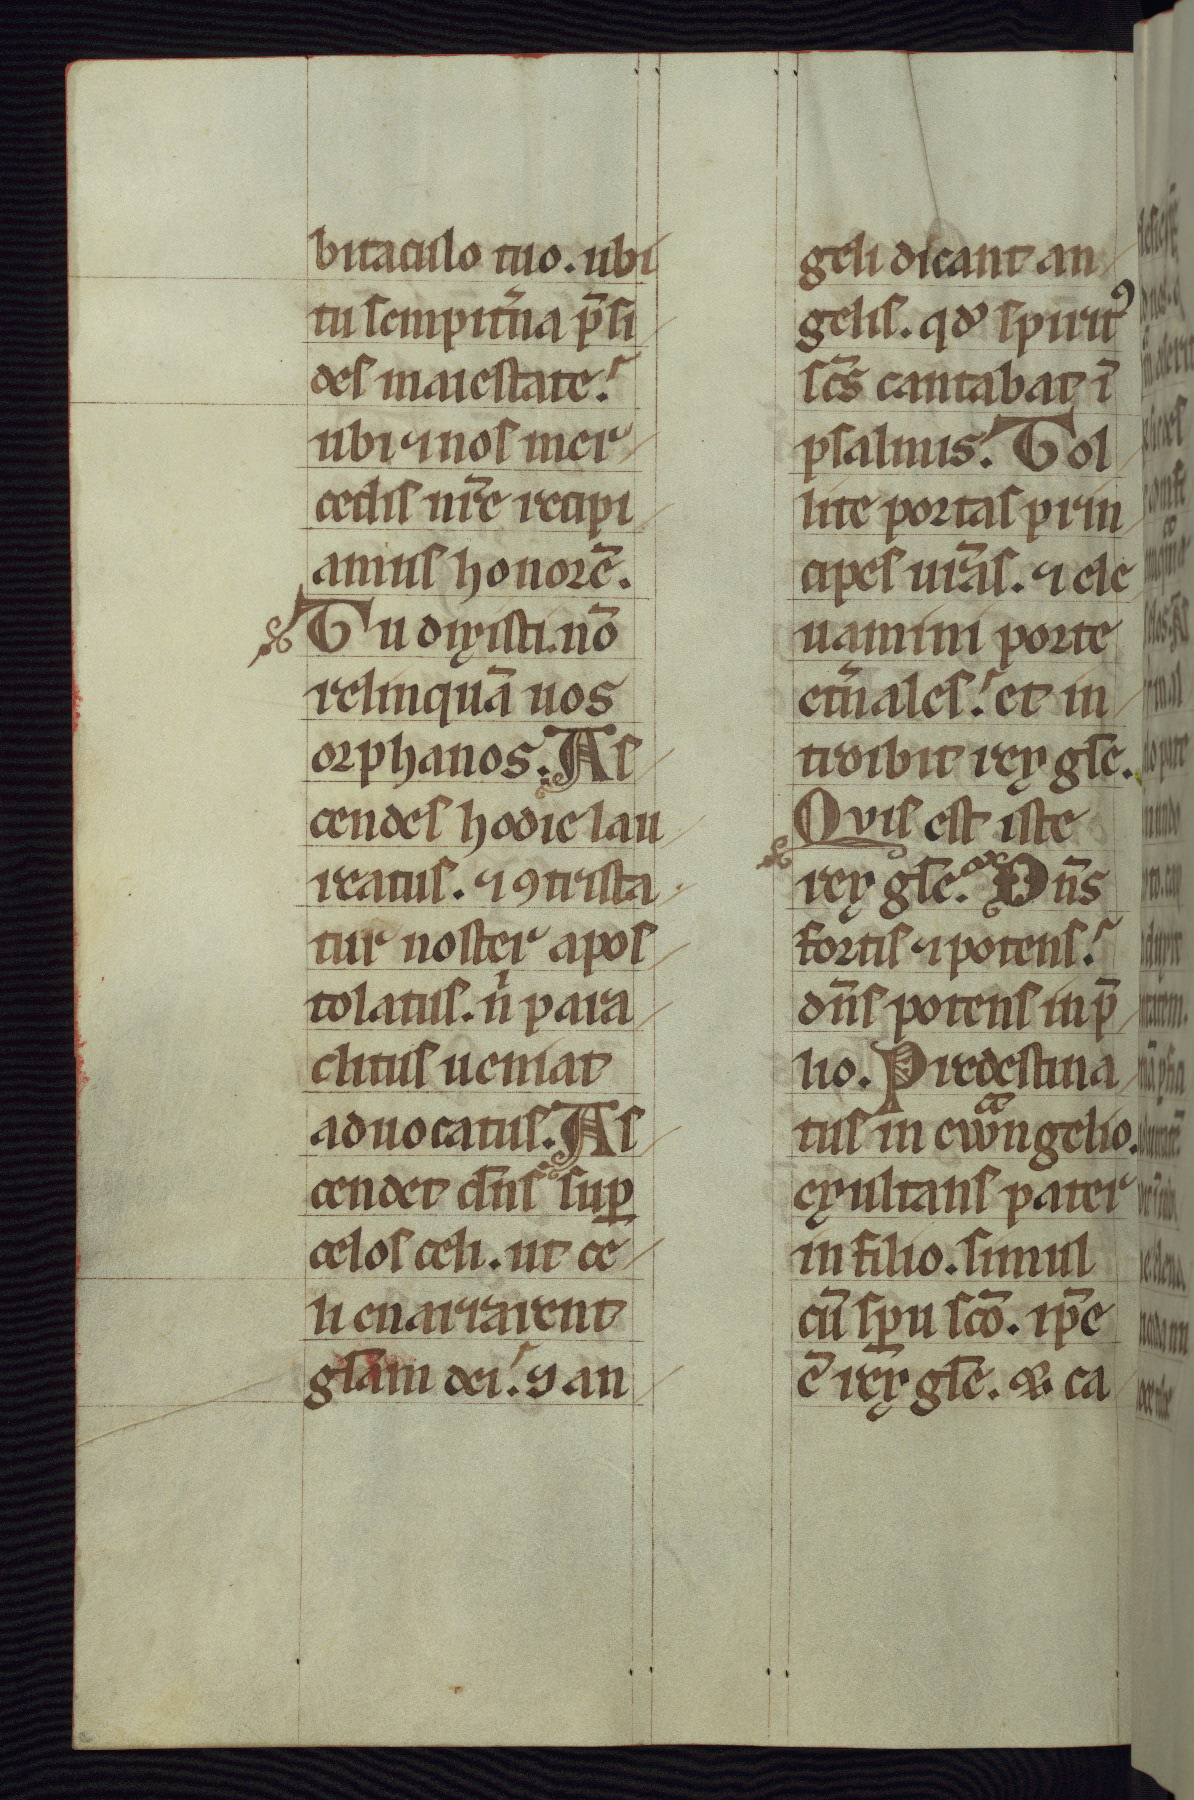 bitaculo tuo. ubi
tu sempit̾na p̄si
des maiestate.
ubi ⁊ nos mer
cedis nr̄e recipi
amus honorē.
Tu dixisti. nō
relinquā uos
orphanos. As
cendes hodie lau
reatus. ⁊ ꝯtrista
tur noster apos
tolatus. ń para
clitus ueniat
aduocatus. As
cendet dn̄s suꝑ
celos celi. ut ce
li enarrarent
gl̄am dei. ꝯ an
geli dicant an
gelis. qđ spiritꝰ
sc̄s cantabat ī
psalmis. Tol
lite portas prin
cipes ur̄as. ⁊ ele
uamini porte
et̾nales. et in
troibit rex gl̄e.
Quis est iste
rex gl̄e. Dn̄s
fortis ⁊ potens.
dn̄s potens in p̄
lio. Predestina
tus in ewangelio.
exultans pater
in filio. simul
cū sp̄u sc̄o. ip̄e
ē rex gl̄e. ca